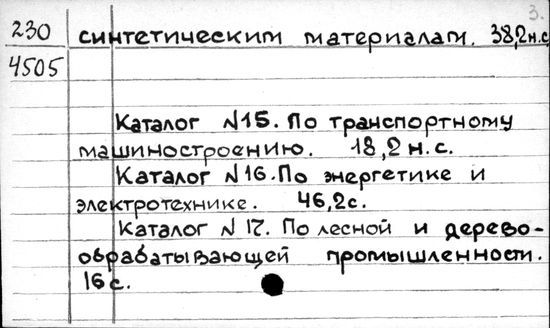 3.
230 синтетическим материалам. 38,2н.с.
4505
Каталог N15. По транспортному
машиностроению. 18,2 н.с.
Каталог N16. По энергетике и
электротехнике. 46,2с.
Каталог N 17. По лесной и дерево-
обрабатывающей промышленности.
16с.